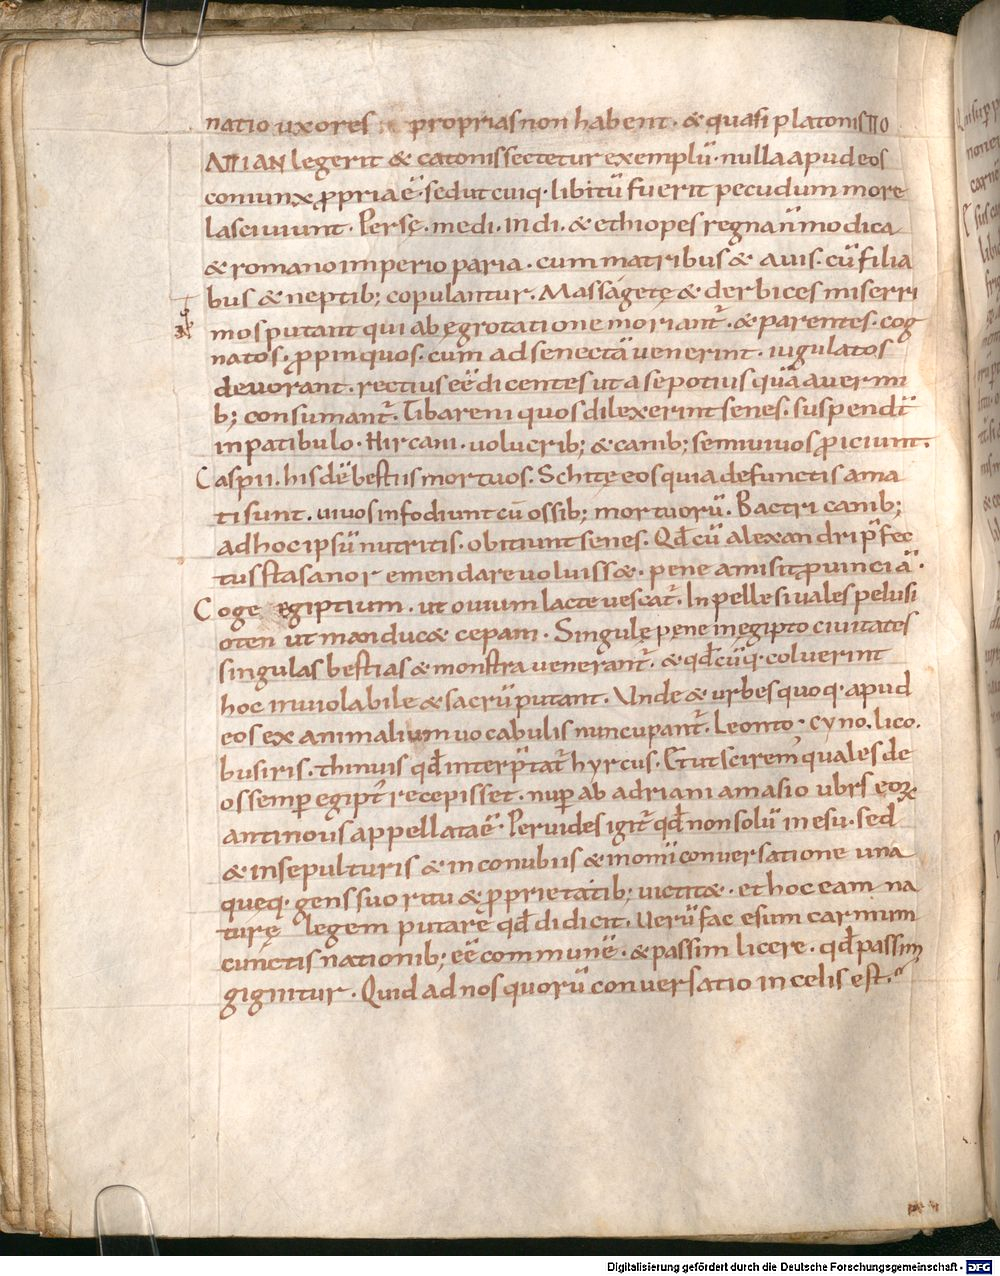 natio uxores proprias non habent. & quasi platonis πo
ΛΙΠΙΑΝ legerit & catonis sectetur exemplū. nulla apud eos
coniunx ꝓpria ē. sed ut cuiq. libitū fuerit pecudum more
lasciuiunt. Persę. medi. indi. & ethiopes regna ñ modica
& romano imperio paria. cum matribus & auis. cū filia
bus & neptib; copulantur. Massagetę & derbices miserri
mos putant qui ab ęgrotatione moriant̃. & parentes. cog
natos. ꝓpinquos. cum ad senectā uenerint. iugulatos
deuorant. rectius eē dicentes ut a se potius quā a uermi
b; consumant̃. Tibareni quos dilexerint senes. suspendt̄
in patibulo. Hircani. uolucrib; & canib; semiuiuos ꝓiciunt.
Caspii. hisdē bestiis mortuos. Schitę eos qui a defunctis ama
ti sunt. uiuos infodiunt cū ossib; mortuorū. Bactri canib;
ad hoc ipsū nutritis. obitiunt senes. Qđ cū alexandri p̄fec
tus stasanor emendare uoluiss&. pene amisit ꝓuinciā.
Coge egiptium. ut ouium lacte uescat̃. In pelle si uales pelusi
oten ut manduc& cepam. Singulę pene in ęgipto ciuitates
singulas bestias & monstra uenerant̃. & qđ cūq. coluerint
hoc inuiolabile & sacrū putant. Unde & urbes quoq. apud
eos ex animalium uocabulis nuncupant̃. Leonto. cyno. lico.
busiris. thmuis qđ interp̄tat̃ hyrcus. Et ut scirem' quales de
os semp̱ egipt' recepisset. nup̱ ab adriani amasio ubrs ęoꝝ
antinous appellata ē. Peruides igit̃ qđ non solū in esu. sed
& in sepulturis & in conubiis & in omī conuersatione una
queq. gens suo ritu & ꝓprietatib; uictit&. et hoc eam na
turę legem putare qđ didicit. Uerū fac esum carnium
cunctis nationib; eē communē. & passim licere. qđ passim
gignitur. Quid ad nos quorū conuersatio in celis est.
Digitalisierung gefördert durch die Deutsche Forschungsgemeinschaft - DFG